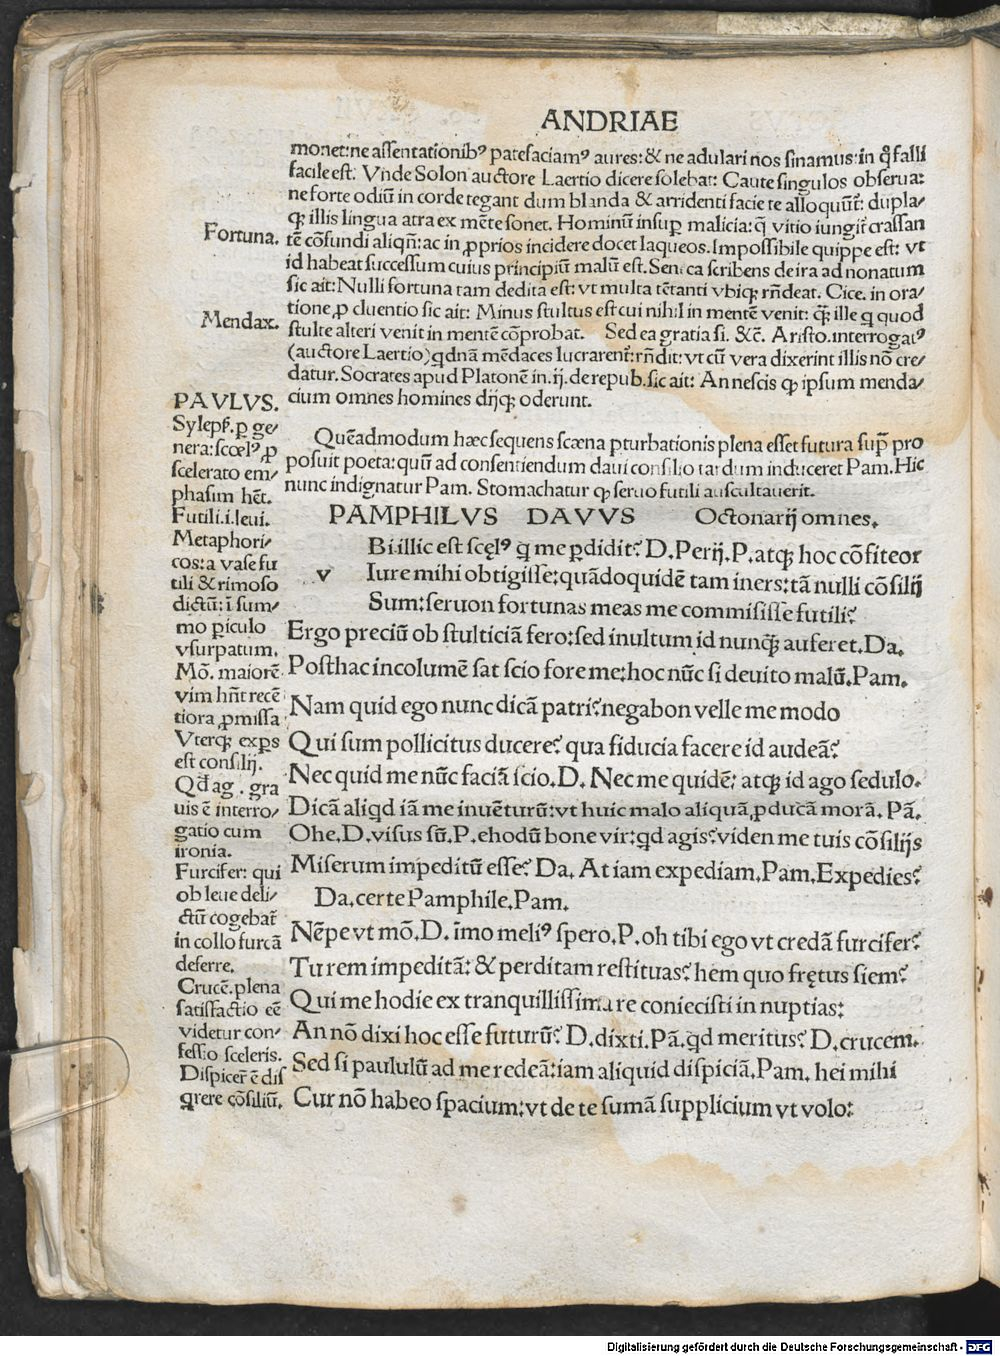 ANDRIAE
monet:ne assentationibꝰ patefaciamꝰ aures:& ne adulari nos sinamus:in q̃ falli
facile est. Vnde Solon auctore Laertio dicere solebat: Caute singulos obserua:
ne forte odiũ in corde tegant dum blanda & arridenti facie te alloquũt̃: dupla/
qꝫ illis lingua atra ex mẽte sonet. Hominũ insuꝑ malicia:q̃ vitio iungit̃ crassan
Fortuna.
tẽ cõfundi aliqñ:ac in ꝓprios incidere docet laqueos. Impossibile quippe est: vt
id habeat successum cuius principiũ malũ est. Seneca scribens de ira ad nonatum
sic ait: Nulli fortuna tam dedita est: vt multa tẽtanti vbiqꝫ rñdeat. Cice. in ora/
tione ꝓ cluentio sic ait: Minus stultus est cui nihil in mentẽ venit: q̃ꝫ ille q quod
Mendax.
stulte alteri venit in mentẽ cõprobat. Sed ea gratia si. &c̃. Aristo. interrogatꝰ
(auctore Laertio) qdnã mẽdaces lucrarent̃: rñdit: vt cũ vera dixerint illis nõ cre/
datur. Socrates apud Platonẽ in .ij. de repub. sic ait: An nescis ꝙ ipsum menda/
cium omnes homines dijqꝫ oderunt.
PAVLVS.
Sylepẽ. ꝑ ge/
nera:scœlꝰ, ꝓ
scelerato em/
phasim hẽt.
Futili.i.leui.
Metaphori/
cos: a vase fu
tili & rimoso
dictũ: ĩ sum/
mo ꝑiculo
vsurpatum.
Mõ. maiorẽ
vim hñt recẽ
tiora ꝓmissa
Vterqꝫ exꝑs
est consilij.
Qd̃ ag. gra
uis ẽ interro/
gatio cum
ironia.
Furcifer: qui
ob leue deli/
ctũ cogebat̃
in collo furcã
deferre.
Crucẽ. plena
satisfactio eẽ
videtur con/
fessio sceleris.
Dispicer̃ ẽ dis
qrere cõsiliũ.
Quẽadmodum hæc sequens scæna ꝑturbationis plena esset futura supͣ pro
posuit poeta: quũ ad consentiendum daui consilio tardum induceret Pam. Hic
nunc indignatur Pam. Stomachatur ꝙ seruo futili auscultauerit.
PAMPHILVS DAVVS Octonarij omnes.
v Bi illic est scęlꝰ q me ꝑdidit? D. Perij. P. atqꝫ hoc cõfiteor
Iure mihi obtigisse: quãdoquidẽ tam iners: tã nulli cõsilij
Sum: seruon fortunas meas me commisisse futili?
Ergo preciũ ob stulticiã fero: sed inultum id nunq̃ꝫ auferet. Da.
Posthac incolumẽ sat scio fore me: hoc nũc si deuito malũ. Pam.
Nam quid ego nunc dicã patri? negabon velle me modo
Qui sum pollicitus ducere? qua fiducia facere id audeã?
Nec quid me nũc faciã scio. D. Nec me quidẽ: atqꝫ id ago sedulo.
Dicã aliqd iã me inuẽturũ: vt huic malo aliquã ꝓducã morã. Pã.
Ohe. D. visus sũ. P. ehodũ bone vir: qd agis? viden me tuis cõsilijs
Miserum impeditũ esse? Da. At iam expediam. Pam. Expedies?
Da. certe Pamphile. Pam.
Nẽpe vt mõ. D. ĩmo meliꝰ spero. P. oh tibi ego vt credã furcifer?
Tu rem impeditã: & perditam restituas? hem quo frętus siem?
Qui me hodie ex tranquillissima re coniecisti in nuptias:
An nõ dixi hoc esse futurũ? D. dixti. Pã. qd meritus? D. crucem.
Sed si paululũ ad me redeã: iam aliquid dispiciã. Pam. hei mihi
Cur nõ habeo spacium: vt de te sumã supplicium vt volo:
Digitalisierung gefördert durch die Deutsche Forschungsgemeinschaft - DFG